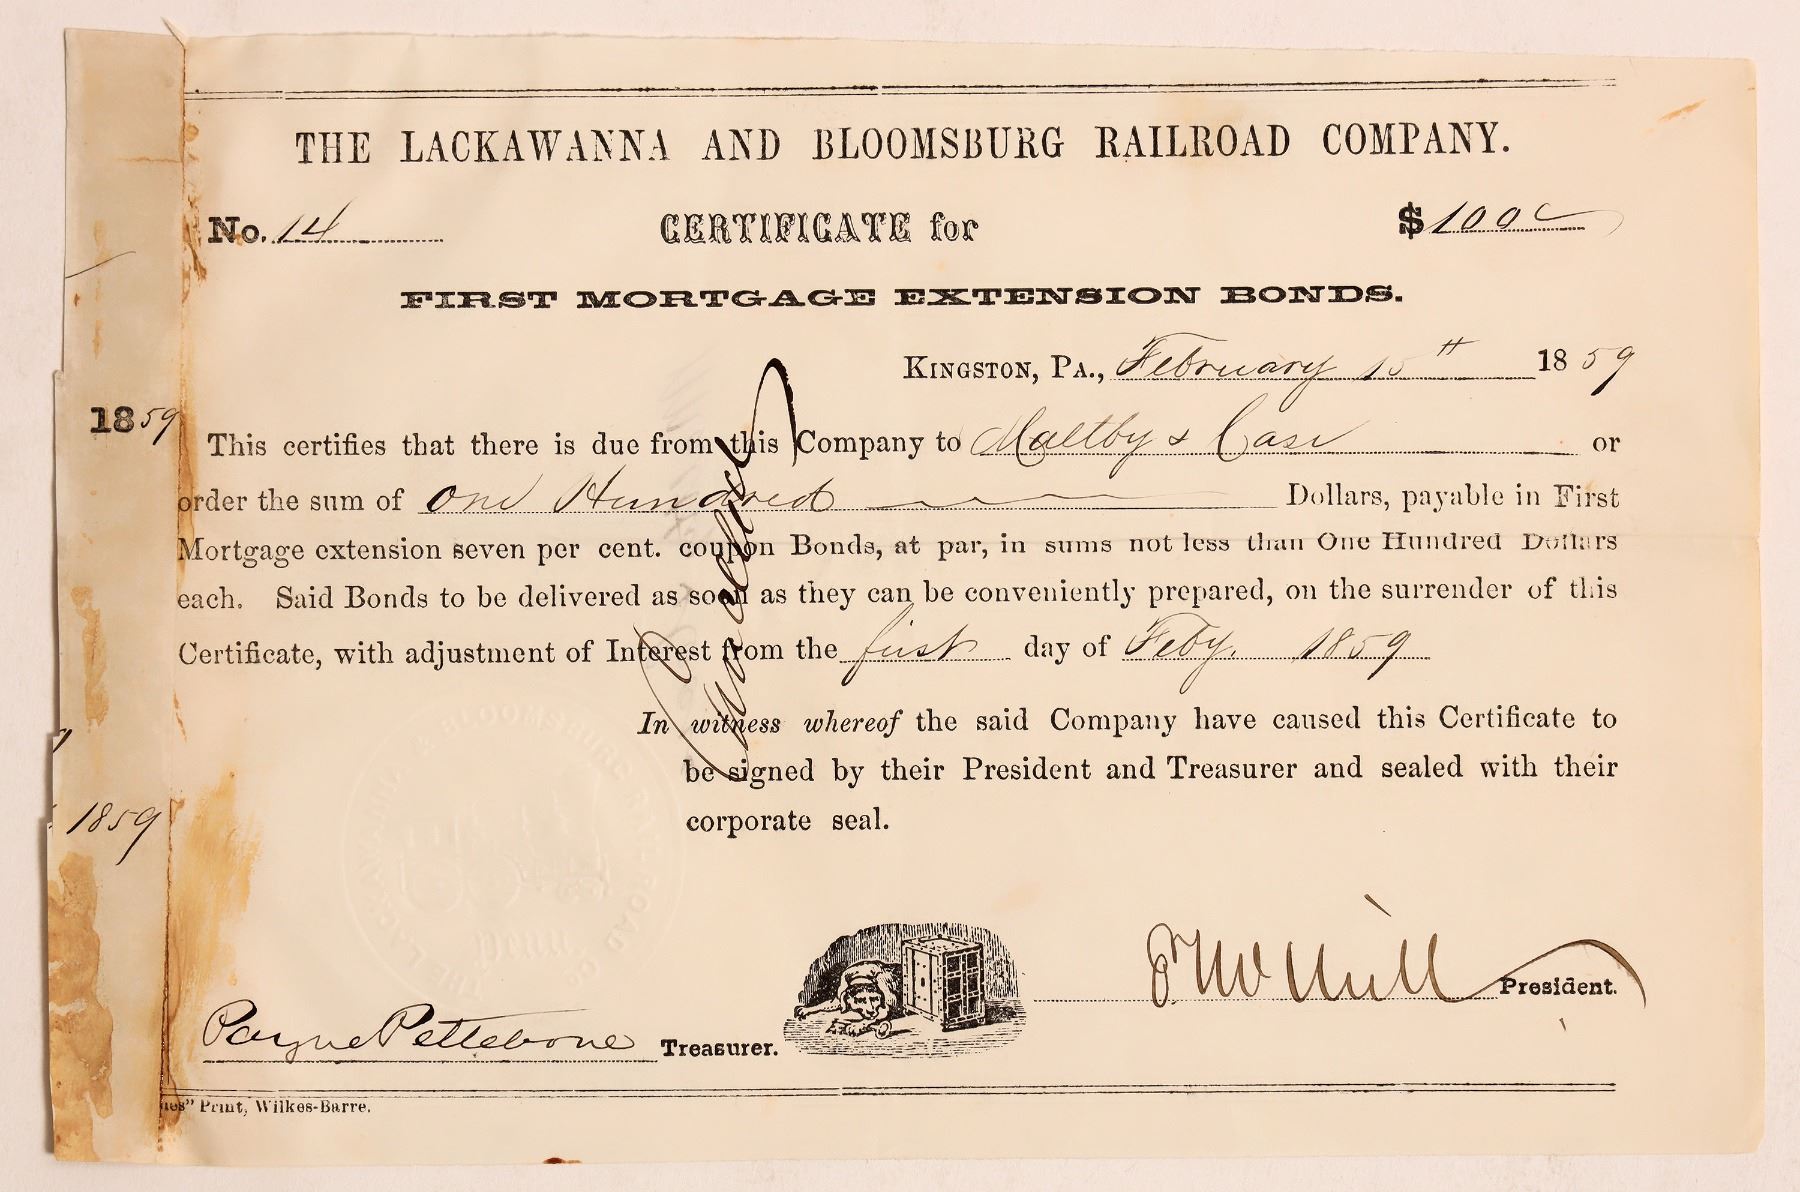 THE LACKAWANNA AND BLOOMSBURG RAILROAD COMPANY.
No. 14 CERTIFICATE for $100
FIRST MORTGAGE EXTENSION BONDS.
KINGSTON, PA., February 15th 1859
1859
This certifies that there is due from this Company to Maltby & Case or
order the sum of One Hundred Dollars, payable in First
Mortgage extension seven per cent. coupon Bonds, at par, in sums not less than One Hundred Dollars
each. Said Bonds to be delivered as soon as they can be conveniently prepared, on the surrender of this
Certificate, with adjustment of Interest from the first day of Feby. 1859
Cancelled
In witness whereof the said Company have caused this Certificate to
be signed by their President and Treasurer and sealed with their
corporate seal.
1859
THE LACKAWANNA & BLOOMSBURG RAIL-ROAD CO.
Penn
President.
Payne Pettebone Treasurer.
Print, Wilkes-Barre.